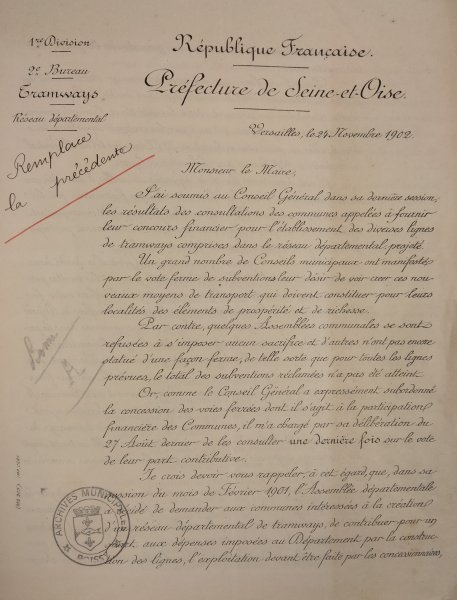 1re Division
2e Bureau
Tramways
Réseau départemental
Remplace
la précédente
République Française.
Préfecture de Seine-et-Oise.
Versailles, le 24 Novembre 1902.
Monsieur le Maire,
J'ai soumis au Conseil Général dans sa dernière session,
les résultats des consultations des communes appelées à fournir
leur concours financier pour l'établissement des diverses lignes
de tramways comprises dans le réseau départemental projeté.
Un grand nombre de Conseils municipaux ont manifesté
par le vote ferme de subventions leur désir de voir créer ces nou-
veaux moyens de transport qui doivent constituer pour leurs
localités des éléments de prospérité et de richesse.
Par contre, quelques Assemblées communales se sont
refusées à s'imposer aucun sacrifice et d'autres n'ont pas encore
statué d'une façon ferme, de telle sorte que pour toutes les lignes
prévues, le total des subventions réclamées n'a pas été atteint.
Or, comme le Conseil Général a expressément subordonné
la concession des voies ferrées dont il s'agit à la participation
financière des Communes, il m'a chargé par sa délibération du
27 Août dernier de les consulter une dernière fois sur le vote
de leur part contributive.
Je crois devoir vous rappeler, à cet égard, que, dans sa
session du mois de Février 1901, l'Assemblée départementale
a décidé de demander aux communes intéressées à la création
d'un réseau départemental de tramways, de contribuer pour un
aux dépenses imposées au Département par la construc-
tion des lignes, l'exploitation devant être faite par les concessionnaires,
ARCHIVES MUNICIPALES